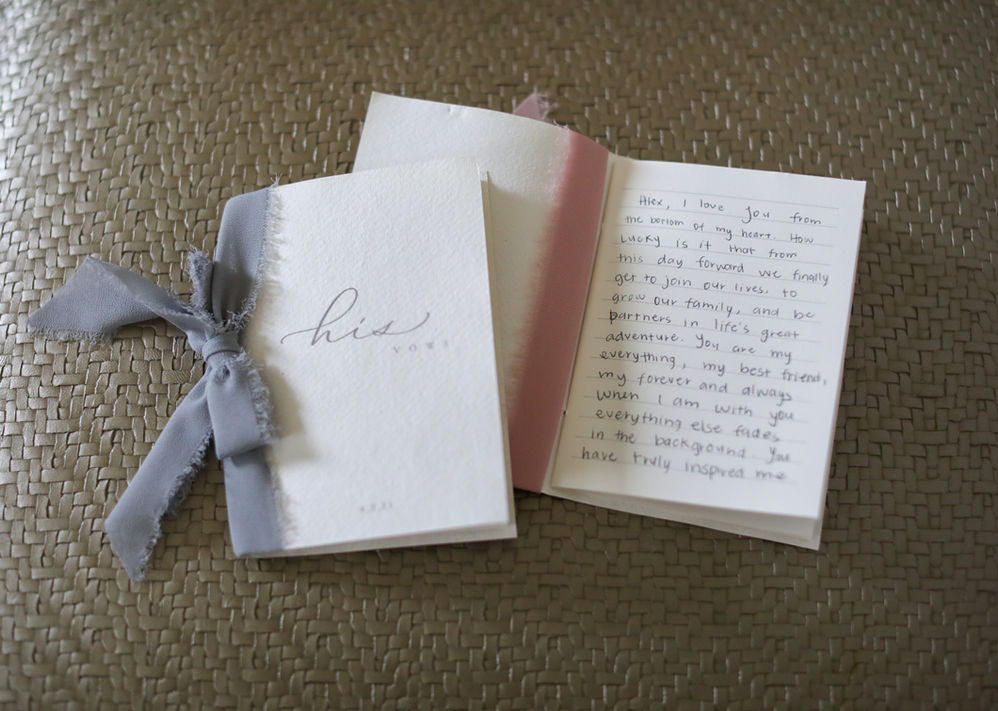 his
VOWS
Alex, I love you from
the bottom of my heart. How
Lucky is it that from
this day forward we finally
get to join our lives. to
grow our family, and be
partners in life's great
adventure. You are my
everything, my best friend,
my forever and always
When I am with you
everything else fades
in the background. You
have truly inspired me